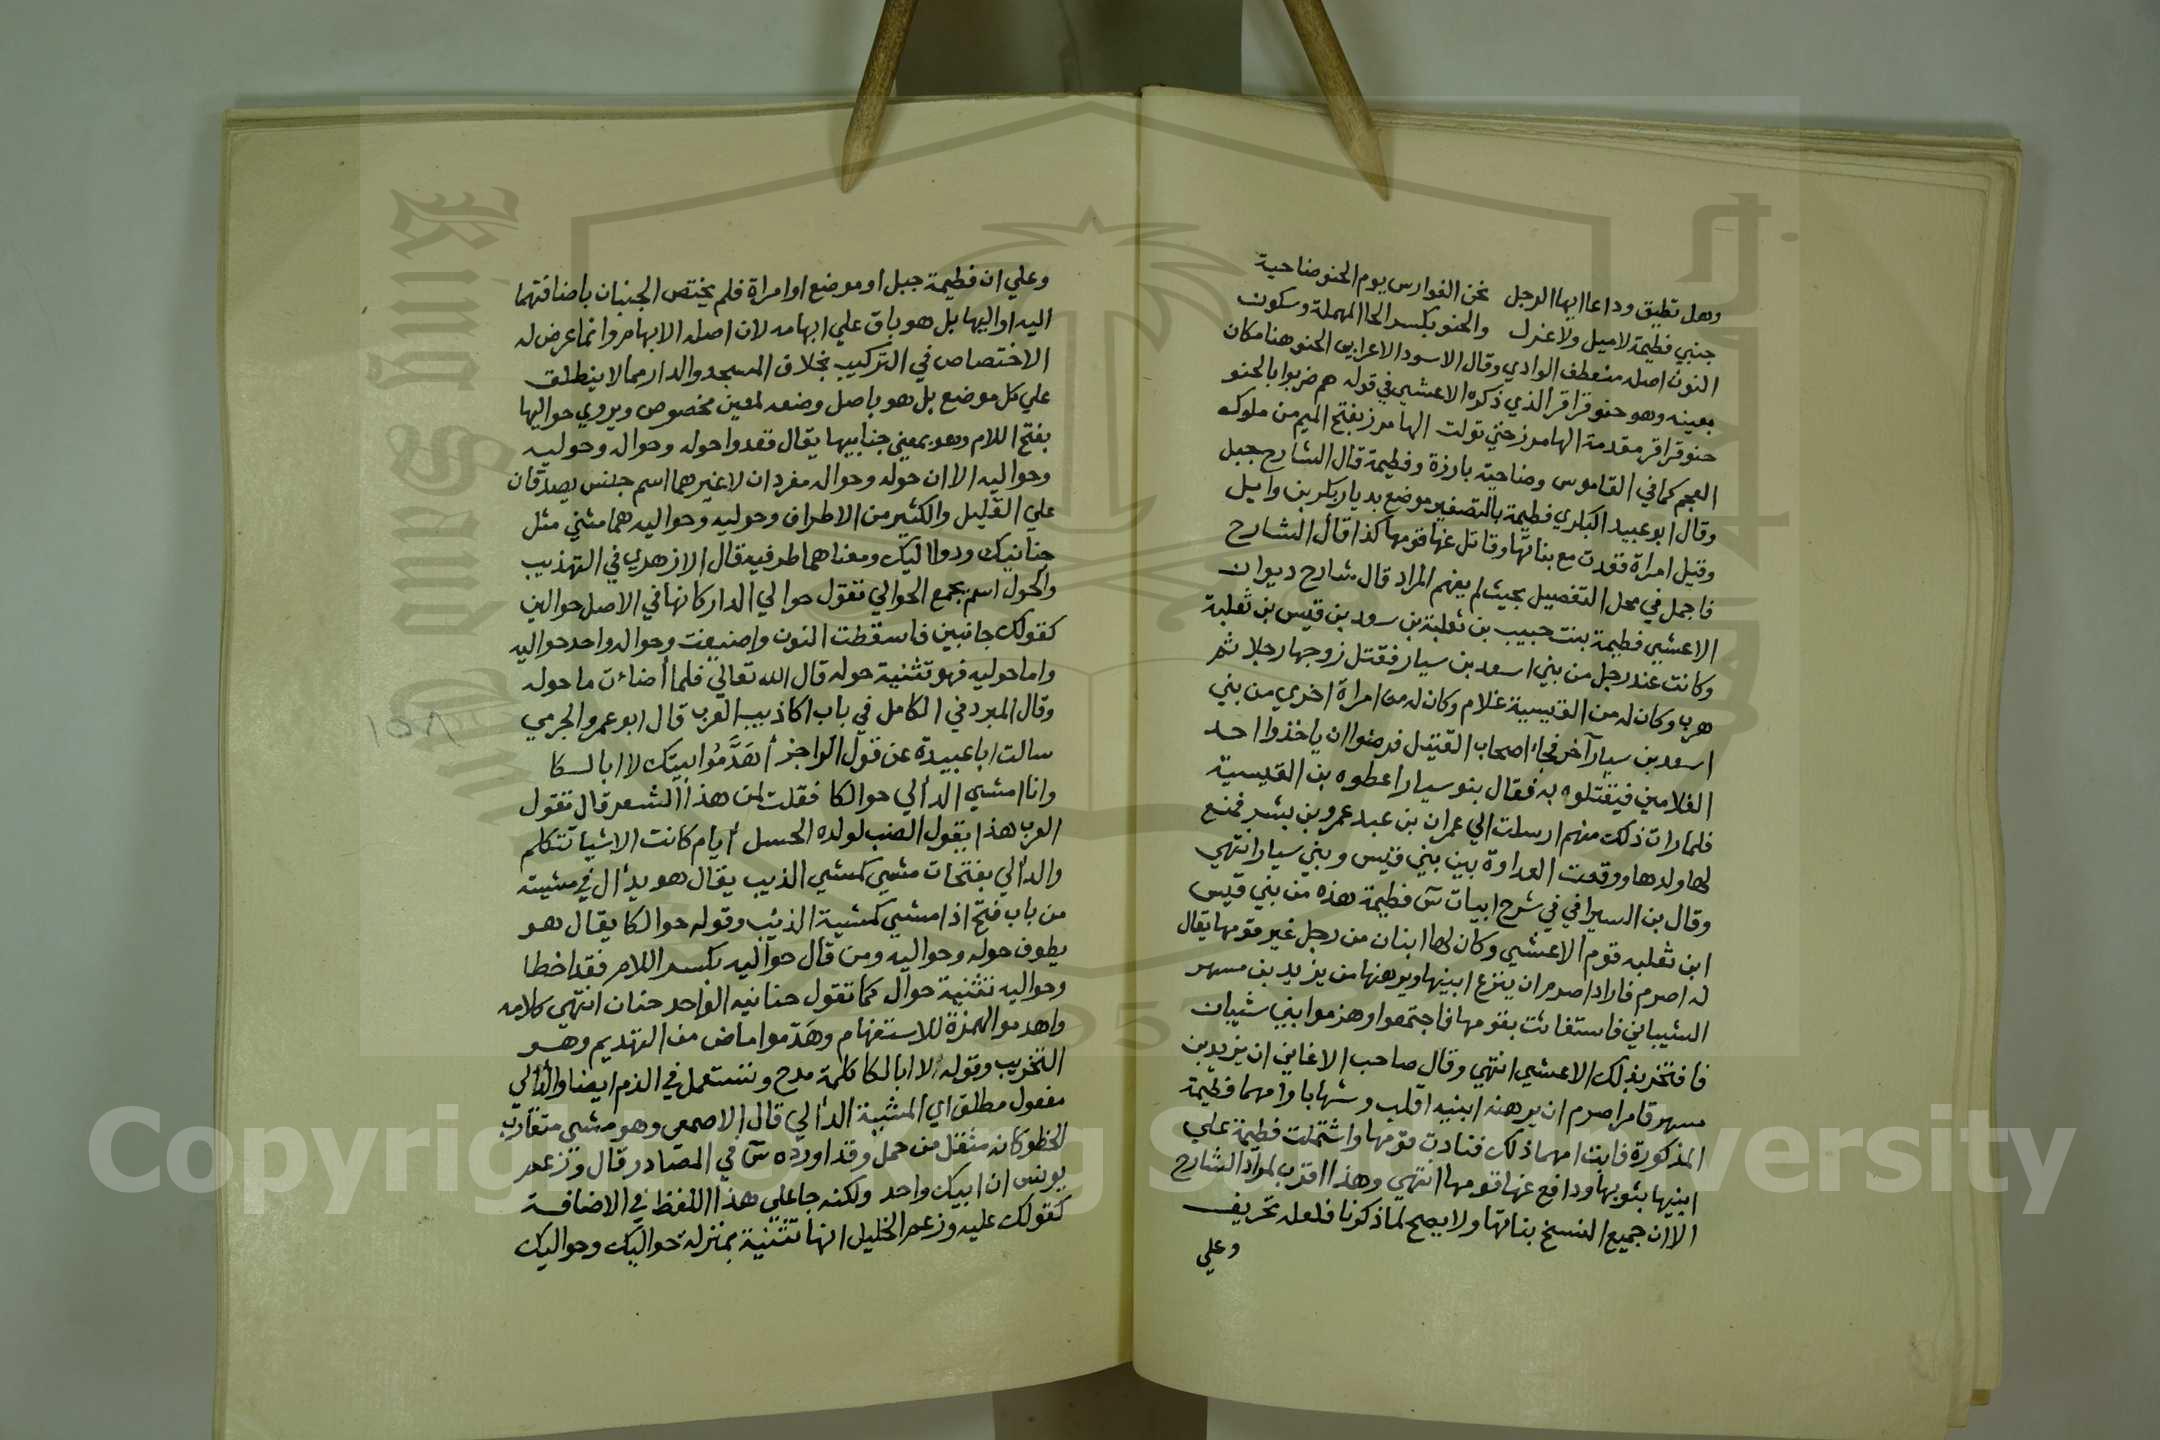 وهل تطيق وداعا ايها الرجل نحن الفوارس يوم الحنو ضاحية
جنبي فطيمة لا ميل ولا عزل والحنو بكسر الحا المهملة وسكون
النون اصله منعطف الوادي وقال الاسود الاعرابي الحنو هنا مكان
بعينه وهو حنو قراقر الذي ذكره الاعشي في قوله هم ضربوا بالحنو
حنو قراقر مقدمة الهامرز حتي تولت الهامرز بفتح الميم من ملوك
العجم كما في القاموس وضاحية بارزة وفطيمة قال الشارح جبل
وقال ابو عبيد البكري فطيمة بالتصغير موضع بديار بكر بن وايل
وقيل امراة فقدت مع بناتها وقاتل عنها قومها كذا قال الشارح
فاجمل في محل التفصيل بحيث لم يفهم المراد قال شارح ديوان
الاعشي فطيمة بنت حبيب بن ثعلبة بن سعد بن قيس بن ثعلبة
وكانت عند رجل من بني اسعد بن سيار فقتل زوجها رجلا ثم
هرب وكان له من القيسية غلام وكان له من امراة اخري من بني
اسعد بن سيار آخر فجاء اصحاب القتيل فرضوا ان ياخذوا احد
الغلامين فيقتلوه به فقال بنو سيار اعطوه بن القيسية
فلما رات ذلك منهم ارسلت الي عمران بن عبد عمرو بن بشر فمنع
لها ولدها ووقعت العداوة بين بني قيس وبني سيار انتهي
وقال بن السيرافي في شرح ابيات س فطيمة هذه من بني قيس
ابن ثعلبه قوم الاعشي وكان لها ابنان من رجل غير قومها يقال
له اصرم فاراد اصرم ان ينزع ابنيها ويرهنها من يزيد بن مسهر
الشيباني فاستغاثت بقومها فاجتمعوا وهزموا بني شيبان
فافتخر بذلك الاعشي انتهي وقال صاحب الاغاني ان يزيد بن
مسهر قامر اصرم ان يرهنه ابنيه اقلب وشهابا وامهما فطيمة
المذكورة فابت امهما ذلك فنادت قومها واشتملت فطيمة علي
ابنيها بثوبها ودافع عنها قومها انتهي وهذا اقرب لمراد الشارح
الا ان جميع النسخ بناتها ولا يصح لما ذكرنا فلعله تحريف
وعلي
وعلي ان فطيمة جبل او موضع او امراة فلم يختص الجنبان باضافتهما
اليه او اليها بل هو باق علي ابهامه لان اصله الابهام وانما عرض له
الاختصاص في التركيب بخلاف المسجد والدار مما لا ينطلق
علي كل موضع بل هو باصل وضعه لمعين مخصوص ويروي حواليها
بفتح اللام وهو بمعني جنابيها يقال قعدوا حوله وحواله وحوليه
وحواليه الا ان حوله وحواله مفردان لا غيرهما اسم جنس يصدقان
علي القليل والكثير من الاطراف وحوليه وحواليه هما مثني مثل
حنانيك ودواليك ومعناهما طرفيه قال الازهري في التهذيب
والحول اسم يجمع الحوالي تقول حوالي الدار كانها في الاصل حوالين
كقولك جانبين فاسقطت النون واضيفت وحواله واحد حواليه
واما حوليه فهو تثنية حوله قال الله تعالي فلما أضاءت ما حوله
وقال المبرد في الكامل في باب اكاذيب العرب قال ابو عمر والجرمي
سالت ابا عبيدة عن قول الراجز أهَدَّمُوا بيتك لا ابا لكا
وانا امشي الدألي حوالكا فقلت لمن هذا الشعر قال تقول
العرب هذا يقول الضب لولده الحسل أيام كانت الاشيا تتكلم
والدألي بفتحات مشي كمشي الذيب يقال هو يدأل في مشيته
من باب فتح اذا مشي كمشية الذيب وقوله حوالكا يقال هو
يطوف حوله وحواليه ومن قال حواليه بكسر اللام فقد اخطا
وحواليه تثنية حوال كما تقول حنانيه الواحد حنان انتهي كلامه
واهدموا الهمزة للاستفهام وهَدّموا ماض من التهديم وهو
التخريب وقوله لا ابا لكا كلمة مدح وتستعمل في الذم ايضا والدألي
مفعول مطلق اي المشية الدألي قال الاصمعي وهو مشي متقارب
الخطو كانه مثقل من حمل وقد اورده س في المصادر قال وزعم
يونس ان ابيك واحد ولكنه جا علي هذا اللفظ في الاضافة
كقولك عليه وزعم الخليل انها تثنية بمنزلة حواليك وحواليك
١٥٨
Copyright © King Saud University
1957